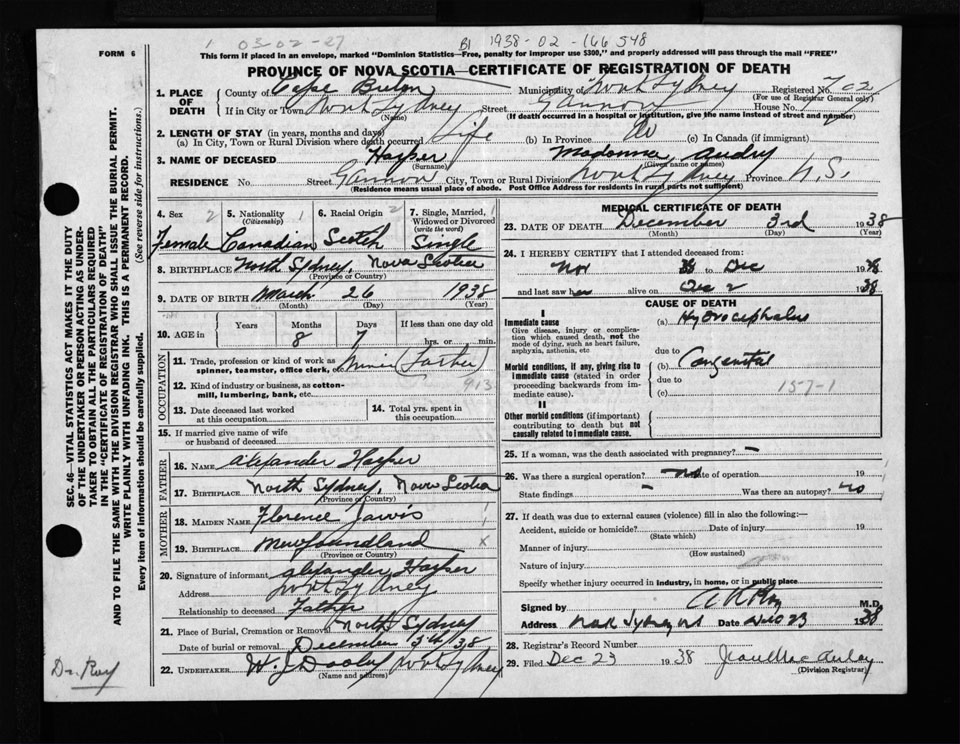 1 03-02-27 B1 1938-02-166548
FORM 6
This form if placed in an envelope, marked "Dominion Statistics—Free, penalty for improper use $300," and properly addressed will pass through the mail "FREE"
PROVINCE OF NOVA SCOTIA—CERTIFICATE OF REGISTRATION OF DEATH
1. PLACE OF DEATH County of Cape Breton Municipality of North Sydney Registered No. 702
(For use of Registrar General only)
If in City or Town North Sydney Street Gannon House No.
(Name) (If death occurred in a hospital or institution, give the name instead of street and number)
2. LENGTH OF STAY (in years, months and days)
(a) In City, Town or Rural Division where death occurred Life (b) In Province Do (c) In Canada (if immigrant)
3. NAME OF DECEASED Harper Madonna Audry
(Surname) (Given name or names)
RESIDENCE No Street Gannon City, Town or Rural Division North Sydney Province N.S.
(Residence means usual place of abode. Post Office Address for residents in rural parts not sufficient)
4. Sex 2 5. Nationality 1 (Citizenship) 6. Racial Origin 2 7. Single, Married, Widowed or Divorced (write the word)
Female Canadian Scotch Single
8. BIRTHPLACE North Sydney, Nova Scotia
(Province or Country)
9. DATE OF BIRTH March 26 1938
(Month) (Day) (Year)
10. AGE in Years Months Days If less than one day old
8 7 hrs. or min.
OCCUPATION
11. Trade, profession or kind of work as spinner, teamster, office clerk, etc. Miner (Father)
12. Kind of industry or business, as cotton-mill, lumbering, bank, etc. 913
13. Date deceased last worked at this occupation 14. Total yrs. spent in this occupation
15. If married give name of wife or husband of deceased
FATHER
16. NAME Alexander Harper
17. BIRTHPLACE North Sydney, Nova Scotia
(Province or Country)
MOTHER
18. MAIDEN NAME Florence Jarvis
19. BIRTHPLACE Newfoundland x
(Province or Country)
20. Signature of informant Alexander Harper
Address North Sydney
Relationship to deceased Father
21. Place of Burial, Cremation or Removal North Sydney
Date of burial or removal December 5th/38
22. UNDERTAKER W. J. Dooley North Sydney
(Name and address)
MEDICAL CERTIFICATE OF DEATH
23. DATE OF DEATH December 3rd 1938
(Month) (Day) (Year)
24. I HEREBY CERTIFY that I attended deceased from:
Nov 38 to Dec 1938
and last saw her alive on Dec 2 1938
CAUSE OF DEATH
I
Immediate cause (a) Hydrocephalus
Give disease, injury or complication which caused death, not the mode of dying, such as heart failure, asphyxia, asthenia, etc
due to
Morbid conditions, if any, giving rise to immediate cause (stated in order proceeding backwards from immediate cause). (b) Congenital
due to
(c) 157-1
II
Other morbid conditions (if important) contributing to death but not causally related to immediate cause.
25. If a woman, was the death associated with pregnancy? –
26. Was there a surgical operation? no Date of operation 19
State findings – Was there an autopsy? no
27. If death was due to external causes (violence) fill in also the following:—
Accident, suicide or homicide? Date of injury 19
(State which)
Manner of injury
(How sustained)
Nature of injury
Specify whether injury occurred in industry, in home, or in public place
Signed by M.D.
Address North Sydney NS Date Dec 23 1938
28. Registrar's Record Number
29. Filed Dec 23 1938 Jean MacAulay
(Division Registrar)
SEC. 46—VITAL STATISTICS ACT MAKES IT THE DUTY
OF THE UNDERTAKER OR PERSON ACTING AS UNDER-
TAKER TO OBTAIN ALL THE PARTICULARS REQUIRED
IN THE "CERTIFICATE OF REGISTRATION OF DEATH"
AND TO FILE THE SAME WITH THE DIVISION REGISTRAR WHO SHALL ISSUE THE BURIAL PERMIT.
WRITE PLAINLY WITH UNFADING INK. THIS IS A PERMANENT RECORD.
Every item of information should be carefully supplied. (See reverse side for instructions.)
Dr. Roy